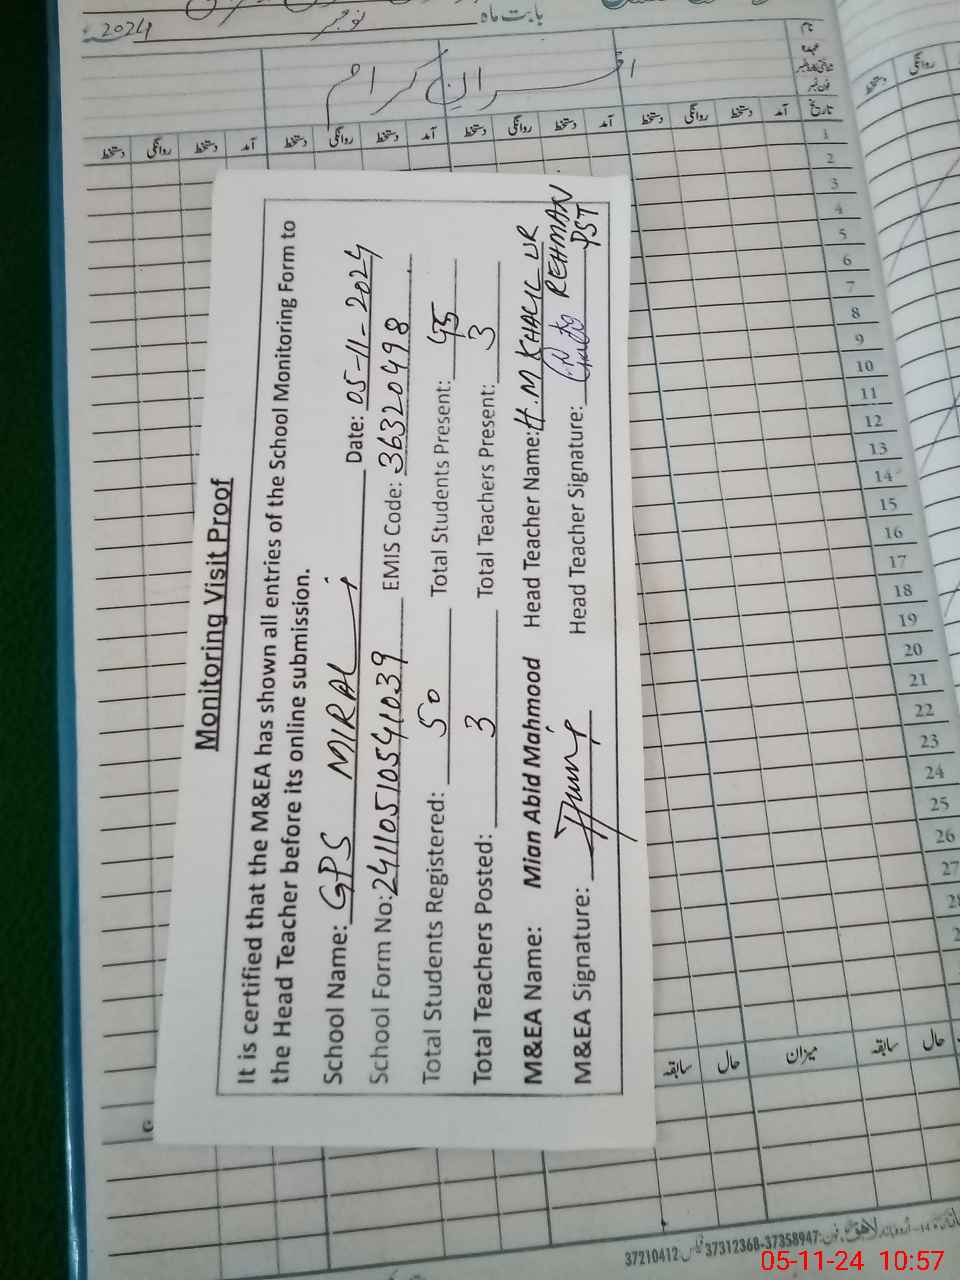 بابت ماہ نومبر 2024
نام
عہدہ
شناختی کارڈ نمبر
فون نمبر
افسران کرام
تاریخ آمد دستخط روانگی دستخط آمد دستخط روانگی دستخط آمد دستخط روانگی دستخط
روانگی دستخط
1
2
3
4
5
6
7
8
9
10
11
12
13
14
15
16
17
18
19
20
21
22
23
24
25
26
27
28
Monitoring Visit Proof
It is certified that the M&EA has shown all entries of the School Monitoring Form to
the Head Teacher before its online submission.
School Name: GPS MIRALI Date: 05-11-2024
School Form No: 24110510541039 EMIS Code: 36320498
Total Students Registered: 50 Total Students Present: 45
Total Teachers Posted: 3 Total Teachers Present: 3
M&EA Name: Mian Abid Mahmood Head Teacher Name: H.M KHALIL UR REHMAN
M&EA Signature: Head Teacher Signature: PST
سابقہ حال میزان سابقہ حال
37210412 فیکس 37312368-37358947 :فون
05-11-24 10:57